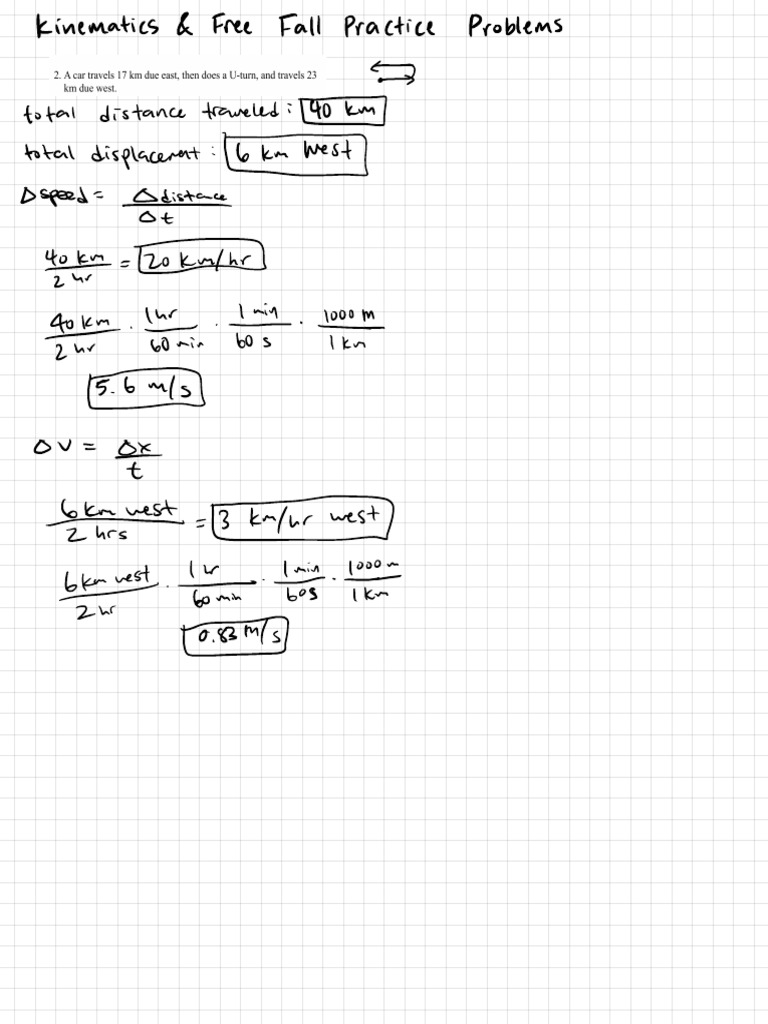 Kinematics & Free Fall Practice Problems
2. A car travels 17 km due east, then does a U-turn, and travels 23
km due west.
total distance traveled: 40 km
total displacement: 6 km West
Δspeed = Δdistance / Δt
40 km / 2 hr = 20 km/hr
40 km / 2 hr · 1 hr / 60 min · 1 min / 60 s · 1000 m / 1 km
5.6 m/s
ΔV = Δx / t
6 km west / 2 hrs = 3 km/hr west
6 km west / 2 hr · 1 hr / 60 min · 1 min / 60s · 1000 m / 1 km
0.83 m/s